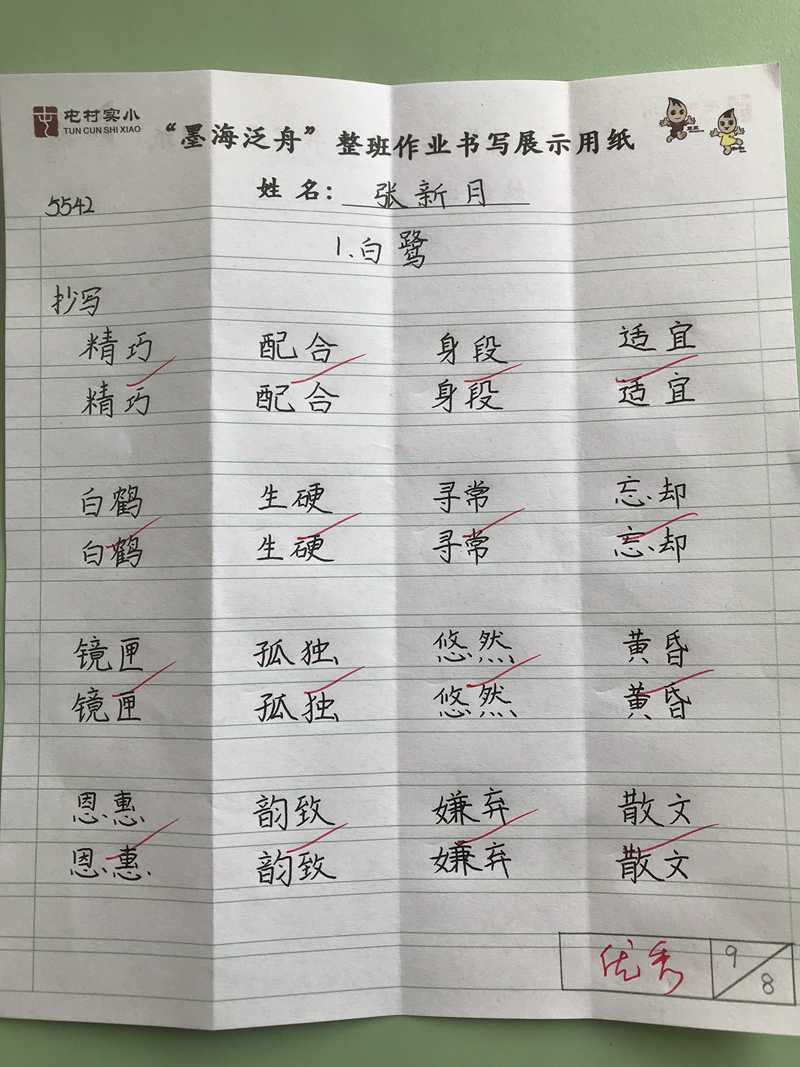 屯村实小
TUN CUN SHI XIAO
“墨海泛舟”整班作业书写展示用纸
姓名：张新月
5542
1.白鹭
抄写
精巧 配合 身段 适宜
精巧 配合 身段 适宜
白鹤 生硬 寻常 忘却
白鹤 生硬 寻常 忘却
镜匣 孤独 悠然 黄昏
镜匣 孤独 悠然 黄昏
恩惠 韵致 嫌弃 散文
恩惠 韵致 嫌弃 散文
优秀 9/8